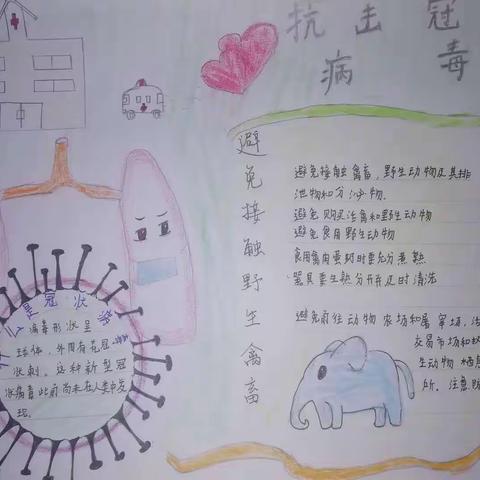 抗击冠
病毒
避免接触野生禽畜
避免接触禽畜，野生动物及其排
泄物和分泌物.
避免购买活禽和野生动物
避免食用野生动物
食用禽肉蛋时要充分煮熟
器具要生熟分开并及时清洗
避免前往动物农场和屠宰场，活
交易市场和
生动物栖息
所. 注意防
么是冠状
病毒形状呈
球体，外围有花冠
状刺。这种新型冠
状病毒此前尚未在人类中发
现.